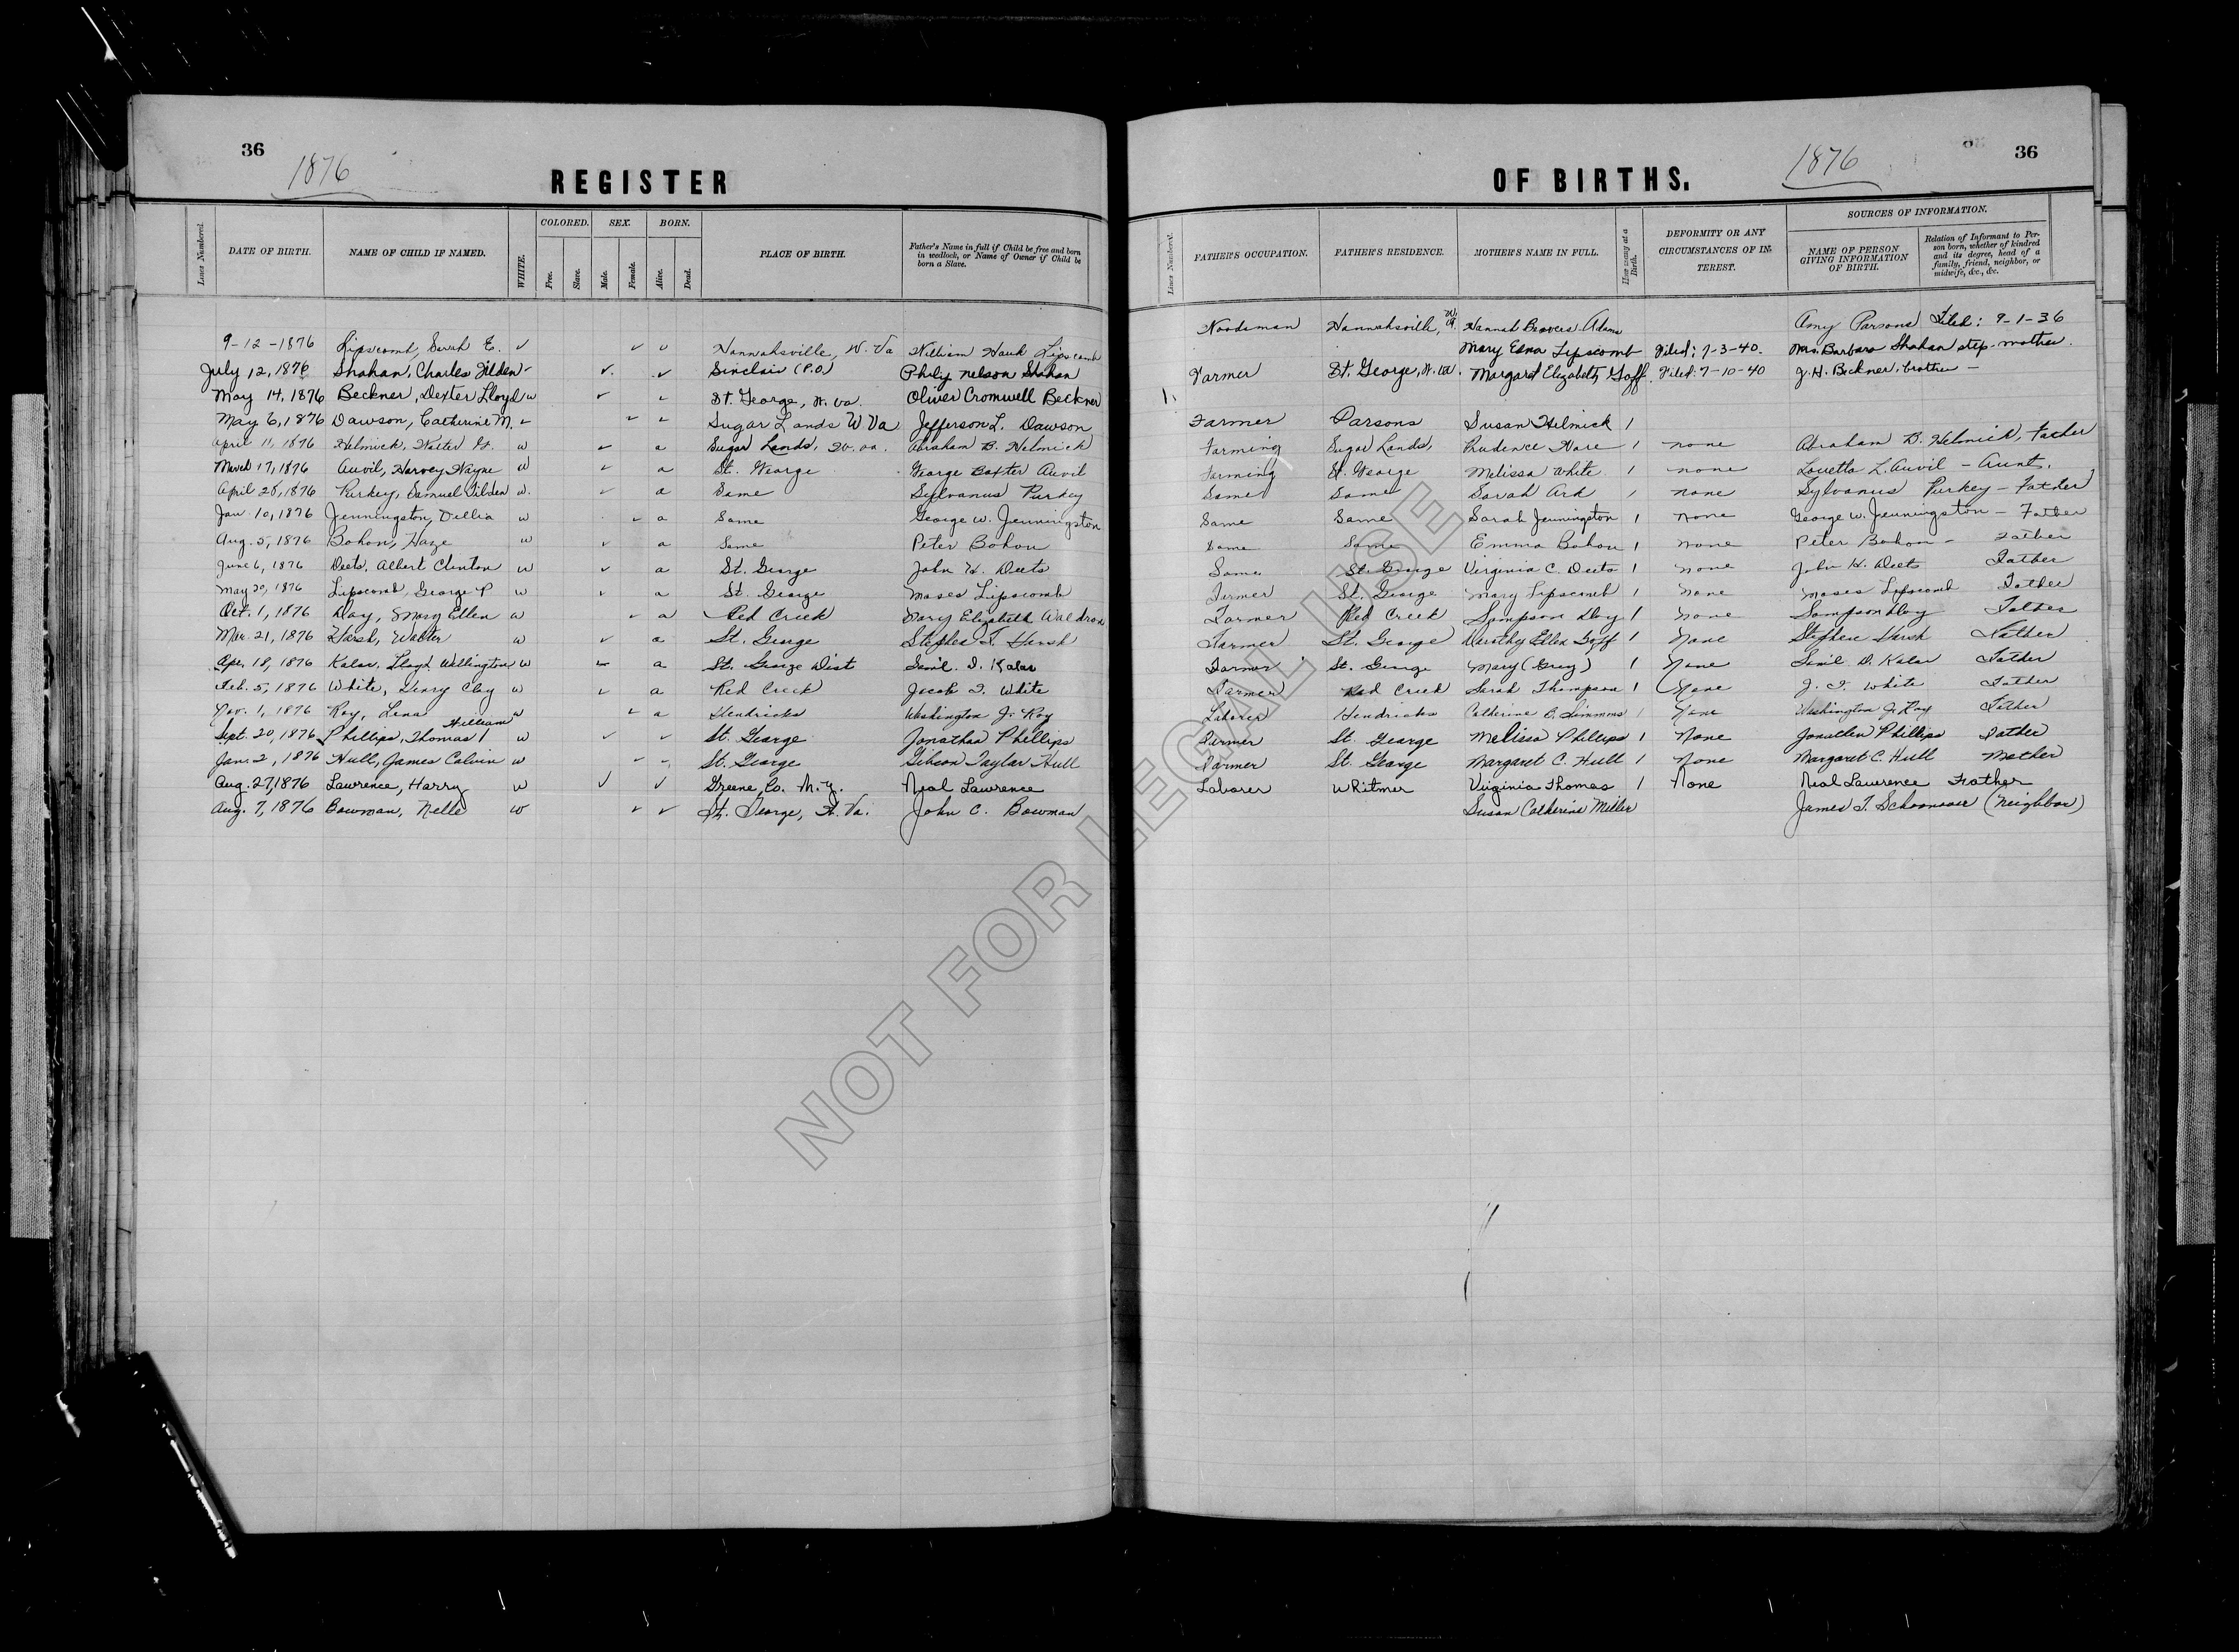 36
1876
REGISTER
Lines Numbered.
DATE OF BIRTH.
NAME OF CHILD IF NAMED.
WHITE.
COLORED.
Free.
Slave.
SEX.
Male.
Female.
BORN.
Alive.
Dead.
PLACE OF BIRTH.
Father's Name in full if Child be free and born
in wedlock, or Name of Owner if Child be
born a Slave.
9-12-1876 Lipscomb, Sarah E. ✓ ✓ ✓ Hannahsville, W. Va William Hauk Lipscomb
July 12, 1876 Shahan, Charles Tilden - ✓ ✓ Sinclair (P.O.) Philip Nelson Shahan
May 14, 1876 Beckner, Dexter Lloyd w ✓ ✓ St. George, W. Va. Oliver Cromwell Beckner
May 6, 1876 Dawson, Catherine M. ✓ ✓ ✓ Sugar Lands W Va Jefferson L. Dawson
April 11, 1876 Helmick, Walter w ✓ a Sugar Lands, W. Va. Abraham B. Helmick
March 17, 1876 Auvil, Harvey Wayne w ✓ a St. George George Baxter Auvil
April 28, 1876 Purkey, Samuel Tilden w. ✓ a Same Sylvanus Purkey
Jan. 10, 1876 Jenningston, Dellia w ✓ a Same George W. Jenningston
Aug. 5, 1876 Bohon, Haze w ✓ a Same Peter Bohon
June 6, 1876 Deets, Albert Clinton w ✓ a St. George John H. Deets
May 20, 1876 Lipscomb, George P w ✓ a St. George Moses Lipscomb
Oct. 1, 1876 Day, Mary Ellen w ✓ a Red Creek Mary Elizabeth Waldron
Mar. 21, 1876 Harsh, Walter w ✓ a St. George Stephen T. Harsh
Apr. 18, 1876 Kalar, Lloyd Wellington w ✓ a St. George Dist Kalar
Feb. 5, 1876 White, Henry Clay w ✓ a Red Creek Jacob T. White
Nov. 1, 1876 Roy, Lena w ✓ a Hendricks Washington J. Roy
William
Sept. 20, 1876 Phillips, Thomas w ✓ ✓ St. George Jonathan Phillips
Jan. 2, 1876 Hull, James Calvin w ✓ ✓ St. George Gibson Taylor Hull
Aug. 27, 1876 Lawrence, Harry w ✓ ✓ Greene, Co. N.Y. Neal Lawrence
Aug. 7, 1876 Bowman, Nelle w ✓ ✓ St. George, W. Va. John C. Bowman
36
1876
OF BIRTHS.
Lines Numbered.
FATHER'S OCCUPATION.
FATHER'S RESIDENCE.
MOTHER'S NAME IN FULL.
How many at a
Birth.
DEFORMITY OR ANY
CIRCUMSTANCES OF IN-
TEREST.
SOURCES OF INFORMATION.
NAME OF PERSON
GIVING INFORMATION
OF BIRTH.
Relation of Informant to Per-
son born, whether of kindred
and its degree, head of a
family, friend, neighbor, or
midwife, &c., &c.
Woodsman Hannahsville, W. Va. Hannah Beavers Adams Amy Parsons Filed: 9-1-36
Mary Edna Lipscomb Filed: 7-3-40. Mrs. Barbara Shahan step-mother.
Farmer St. George, W. Va. Margaret Elizabeth Goff. Filed: 7-10-40 J. H. Beckner, brother -
Farmer Parsons Susan Helmick 1
Farming Sugar Lands, Prudence Hare 1 none Abraham B. Helmick, Father
Farming St. George Melissa White 1 none Louetta L. Auvil - Aunt.
Same Same Sarah Ark 1 none Sylvanus Purkey - Father
Same Same Sarah Jenningston 1 none George W. Jenningston - Father
Same Same Emma Bohon 1 none Peter Bohon - Father
Same St. George Virginia C. Deets 1 none John H. Deets Father
Farmer St. George Mary Lipscomb 1 none Moses Lipscomb Father
Farmer Red Creek Sampson Day 1 none Sampson Day Father
Farmer St. George Dorothy Ellen Goff 1 None Stephen Harsh Father
Farmer St. George Mary (Gray) 1 None D. Kalar Father
Farmer Red Creek Sarah Thompson 1 None J. T. White Father
Laborer Hendricks Catherine C. Simmons 1 None Washington J. Roy Father
Farmer St. George Melissa Phillips 1 None Jonathan Phillips Father
Farmer St. George Margaret C. Hull 1 None Margaret C. Hull Mother
Laborer Writmer Virginia Thomas 1 None Neal Lawrence Father
Susan Catherine Miller James T. Schoonover (Neighbor)
NOT FOR LEGAL USE